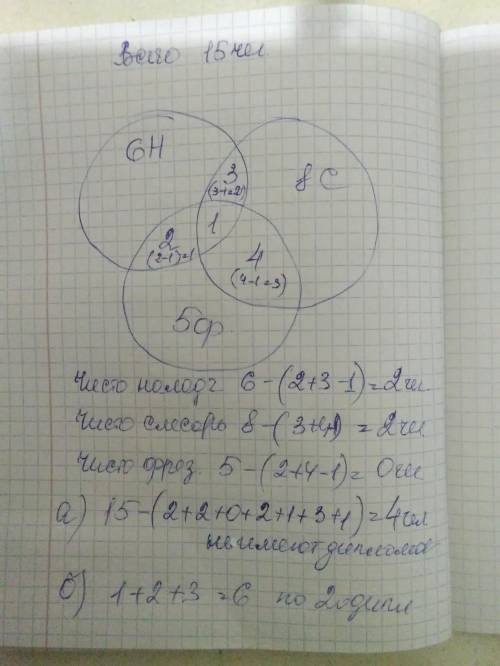 Всего 15 чел
6Н
3
(3-1=2)
8С
1
2
(2-1)=1
4
(4-1=3)
5ф
Чисто наладч 6-(2+3-1)=2чел
Чисто слесарь 8-(3+4-1)=2чел
Чисто фрез. 5-(2+4-1)=0чел
а) 15-(2+2+0+2+1+3+1)=4чел
не имеют дипломов
б) 1+2+3=6 по 2 дипл